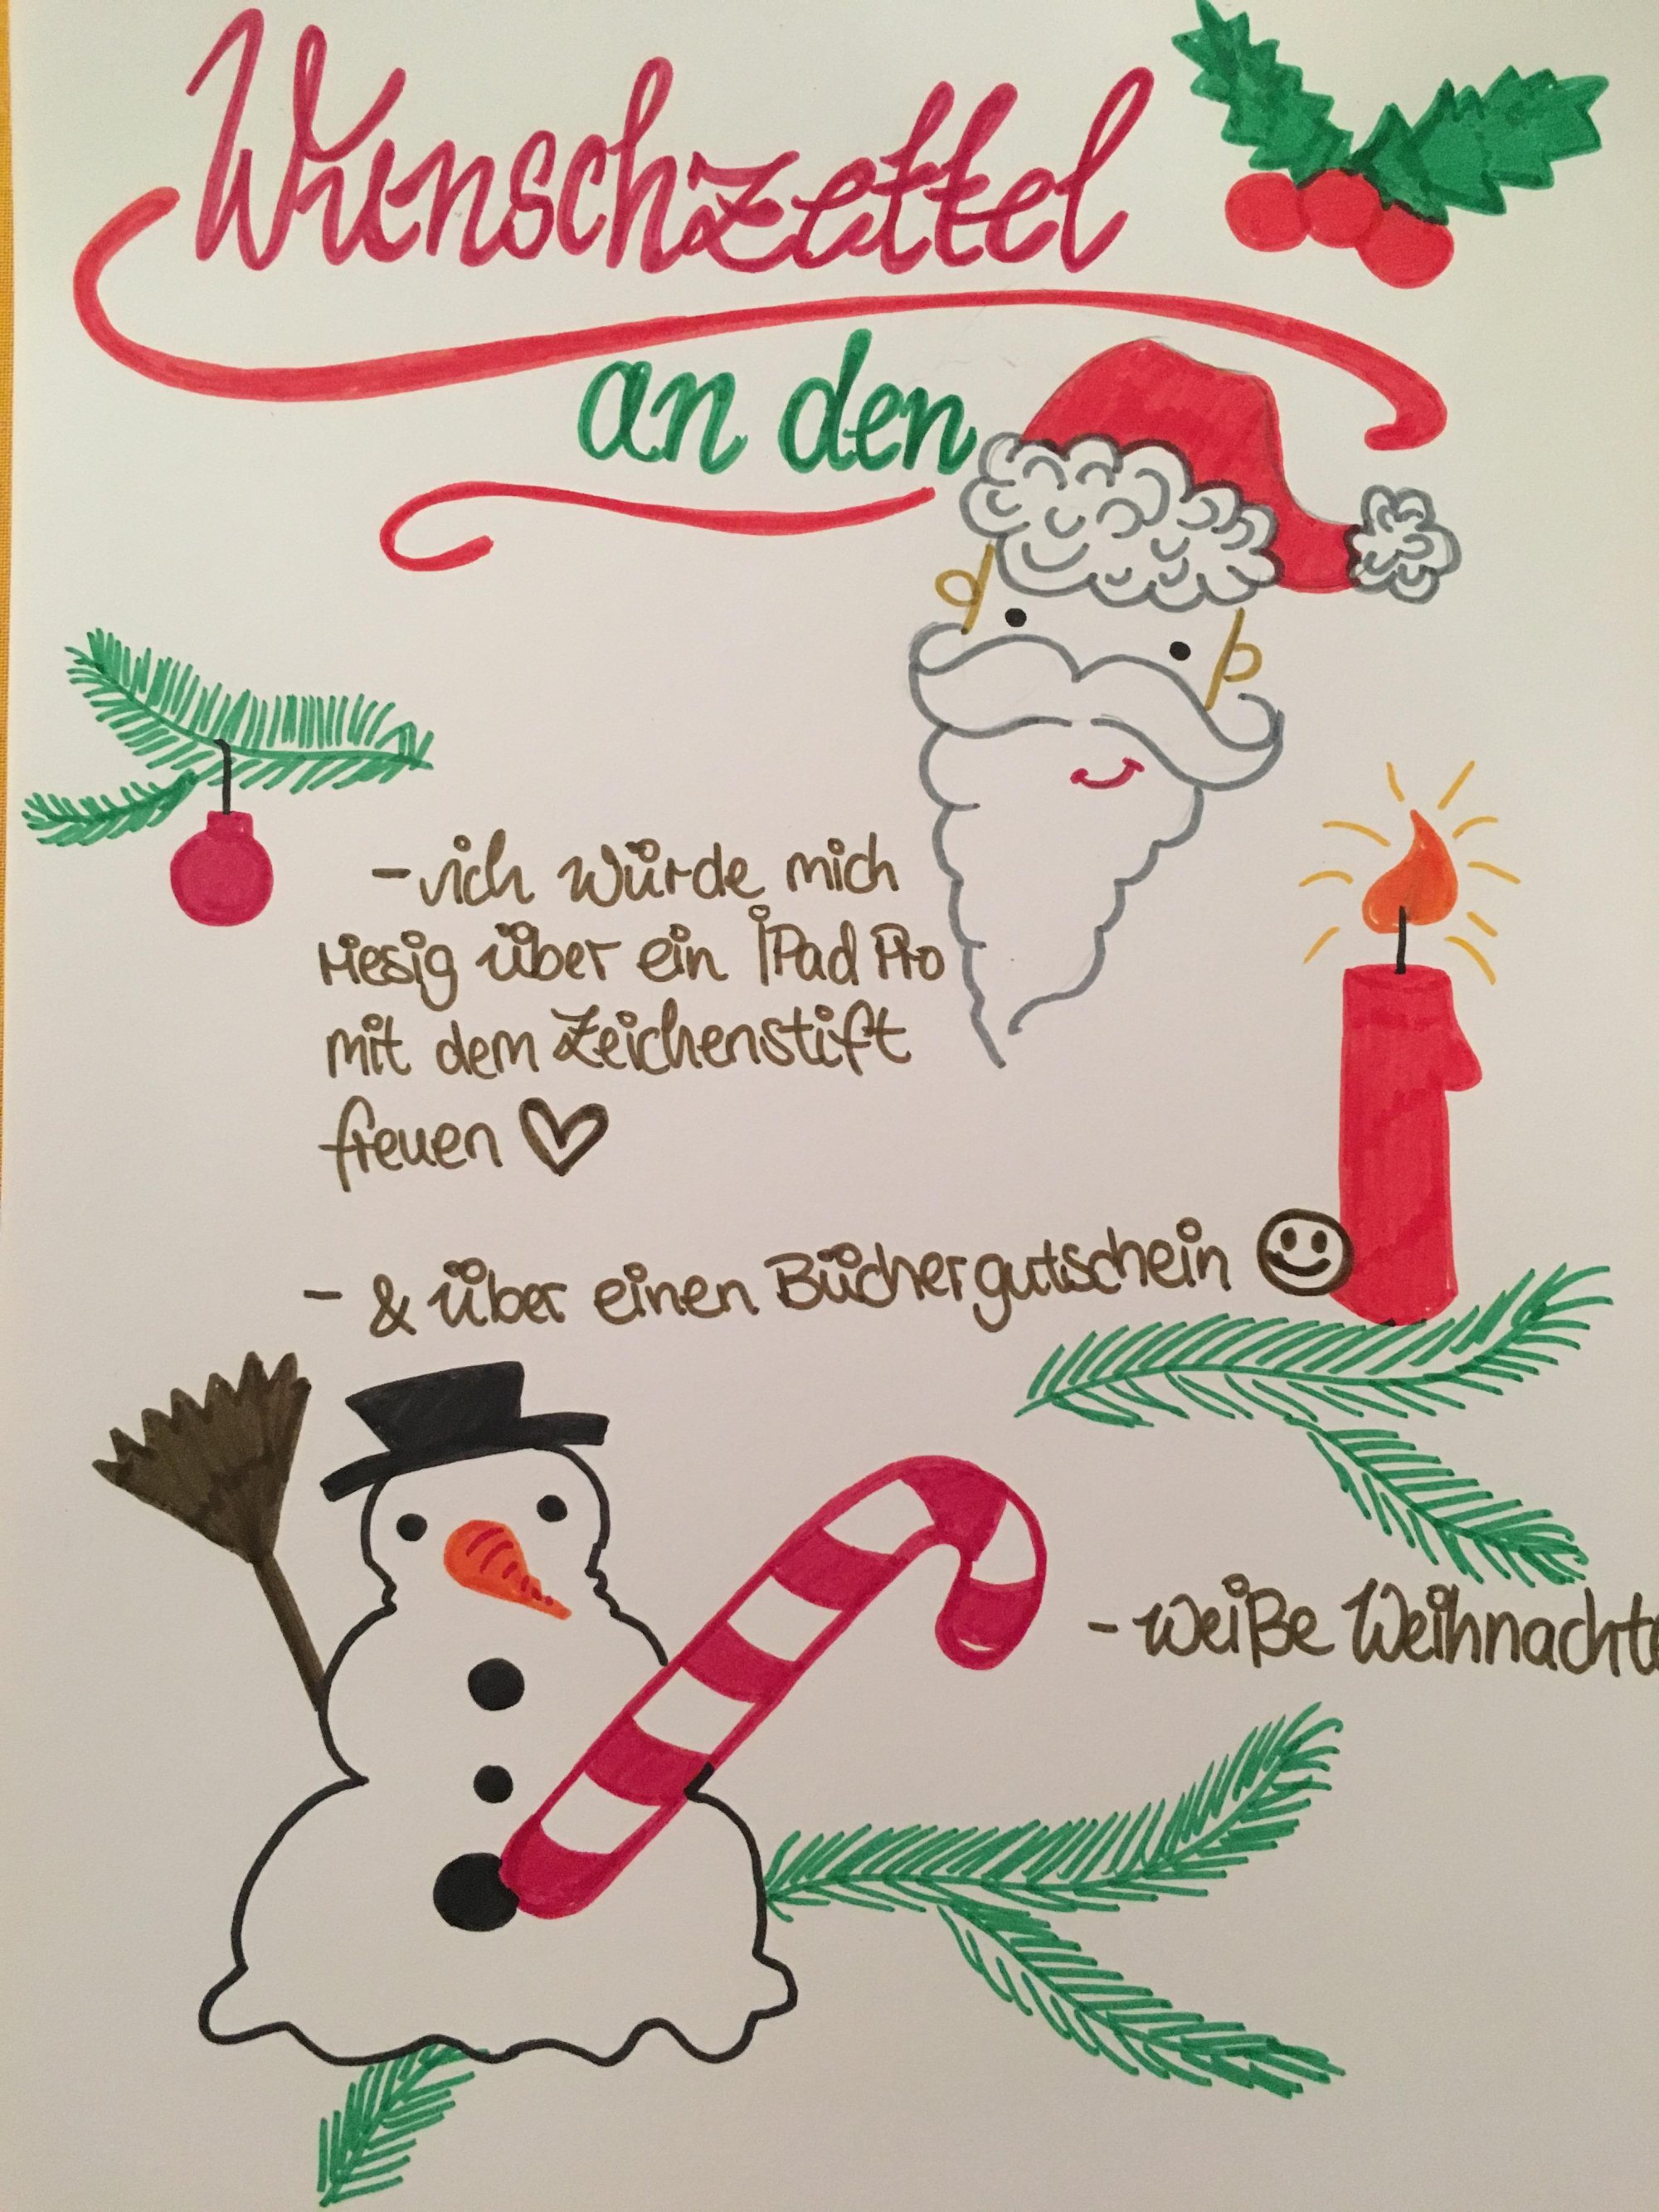 Wunschzettel
an den
- ich würde mich
riesig über ein iPad Pro
mit dem Zeichenstift
freuen ♡
- & über einen Büchergutschein ☺
- weiße Weihnachte